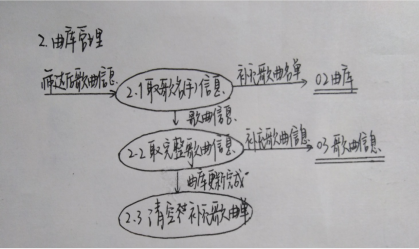 2.曲库管理
2.1取歌名(手)信息
补充歌曲名单
02曲库
歌曲信息
2.2取完整歌曲信息
补充歌曲信息
03歌曲信息
曲库更新完成
2.3清空待补充歌曲单